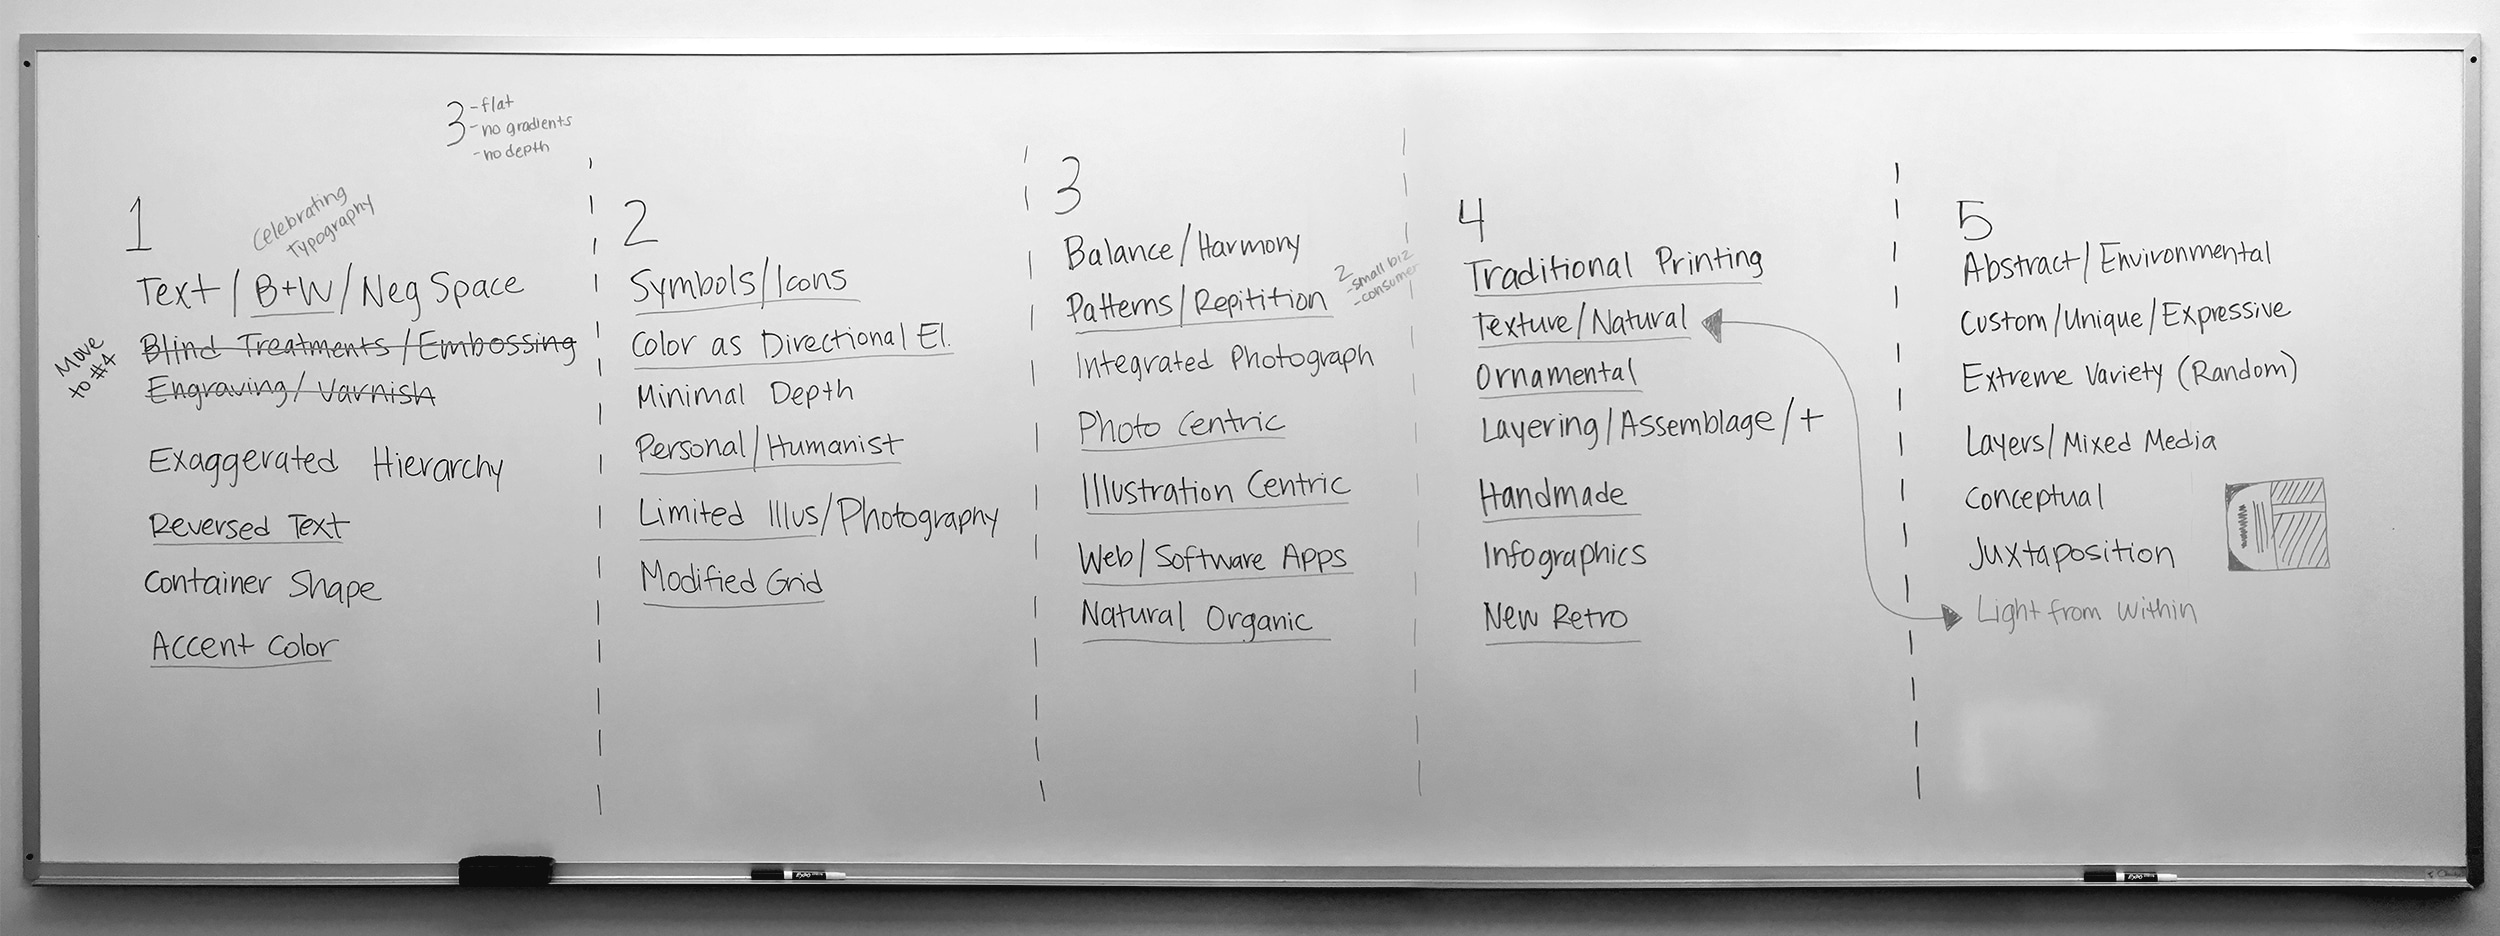 3 -flat
-no gradients
-no depth
Celebrating
Typography
1
Text / B+W / Neg Space
Move
to #4
Blind Treatments / Embossing
Engraving / Varnish
Exaggerated Hierarchy
Reversed Text
Container Shape
Accent Color
2
Symbols/Icons
Color as Directional El.
Minimal Depth
Personal/Humanist
Limited Illus/Photography
Modified Grid
3
Balance/Harmony
Patterns/Repitition
2
-small biz
-consumer
Integrated Photograph
Photo Centric
Illustration Centric
Web/Software Apps
Natural Organic
4
Traditional Printing
Texture/Natural
Ornamental
Layering/Assemblage/+
Handmade
Infographics
New Retro
5
Abstract/Environmental
Custom/Unique/Expressive
Extreme Variety (Random)
Layers/Mixed Media
Conceptual
Juxtaposition
Light from within
EXPO
EXPO